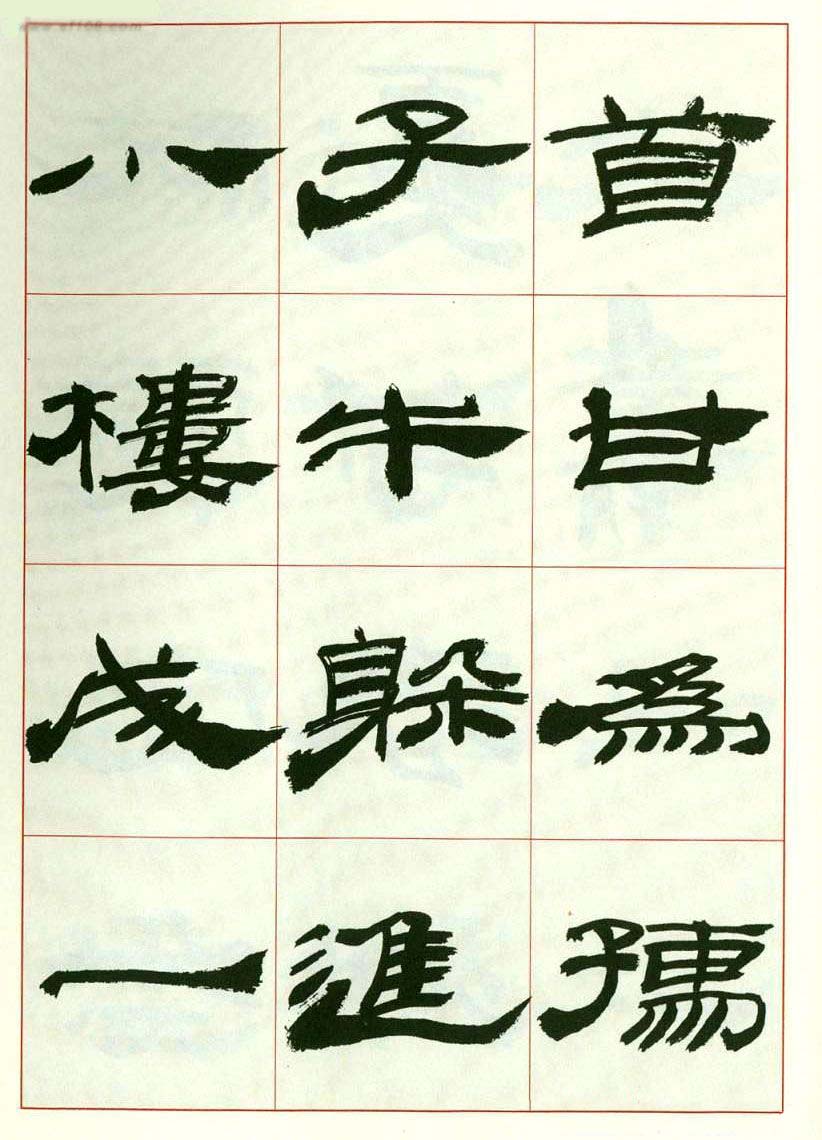 首甘為孺
子牛躲進
小樓成一